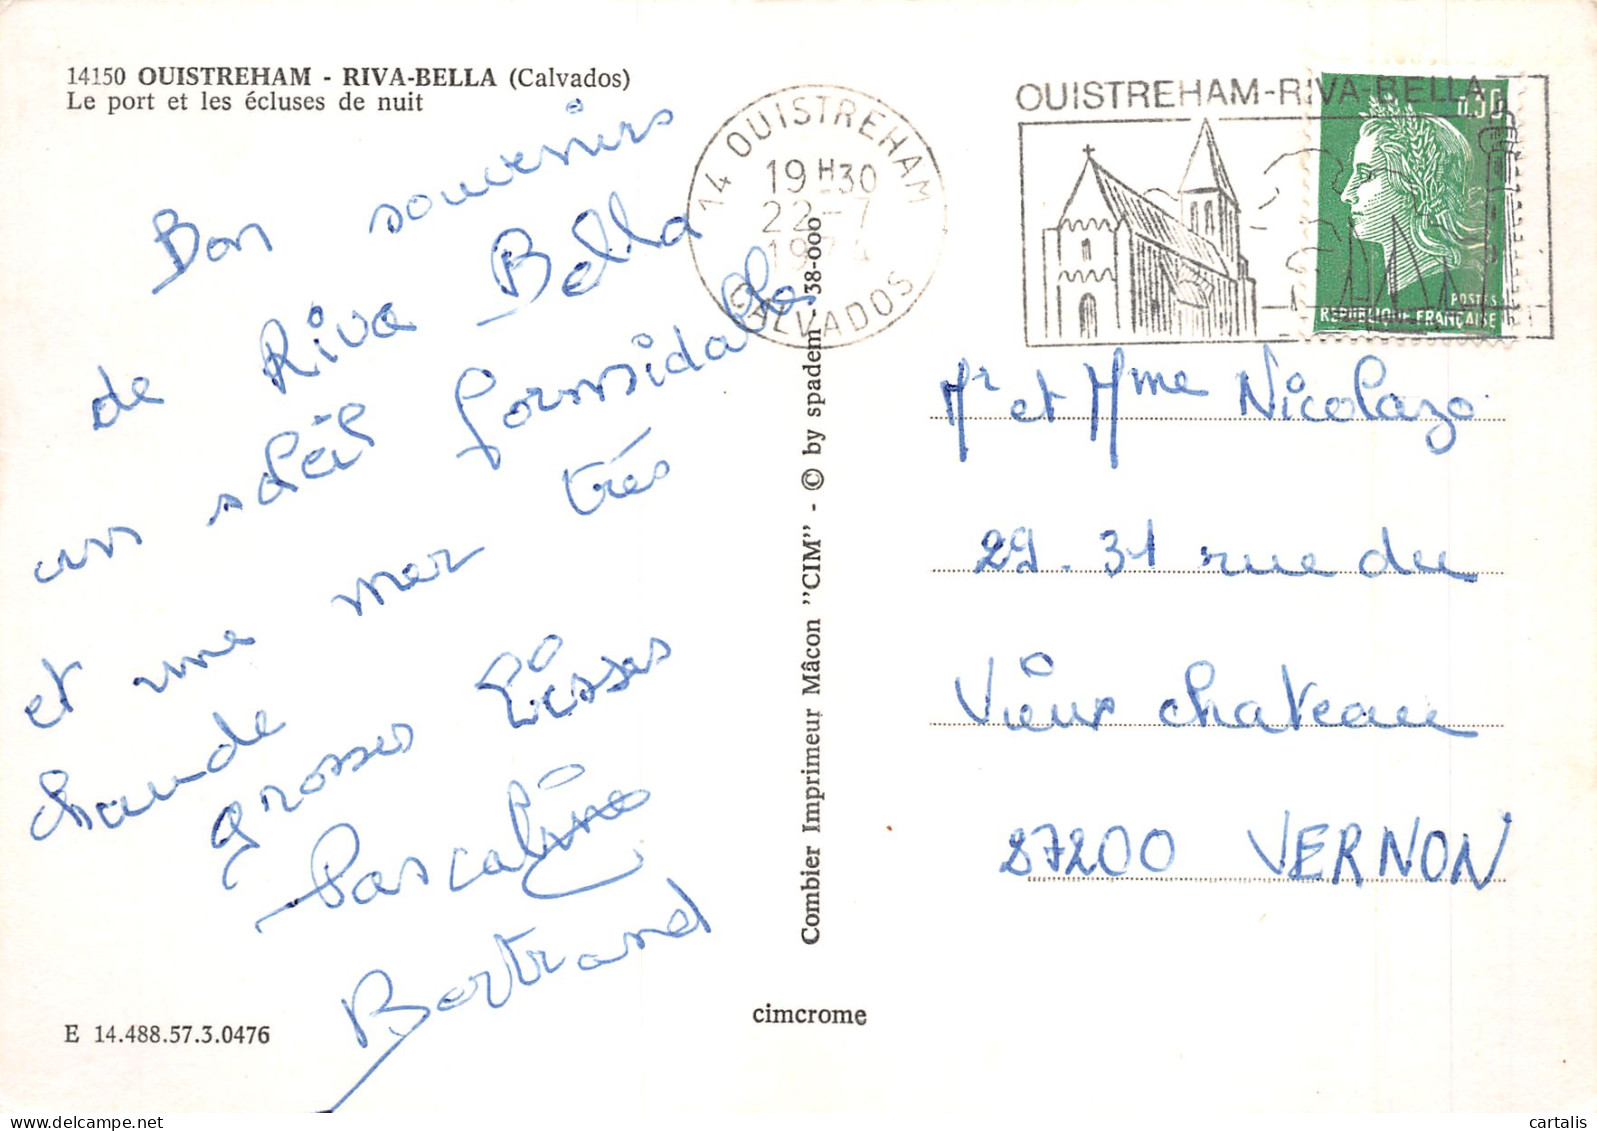 14150 OUISTREHAM - RIVA-BELLA (Calvados)
Le port et les écluses de nuit
Bon souvenirs
de Riva Bella
un soleil formidable
et une mer très
chaude
grosses bisses
Pascaline
Bertrand
E 14.488.57.3.0476
Combier Imprimeur Mâcon "CIM" - © by spadem - 38-000
cimcrome
14 OUISTREHAM
19 H30
22-7
CALVADOS
OUISTREHAM-RIVA-BELLA
0,30
POSTES
REPUBLIQUE FRANÇAISE
Mr et Mme Nicolazo
29-31 rue du
Vieux chateau
27200 VERNON
cartalis